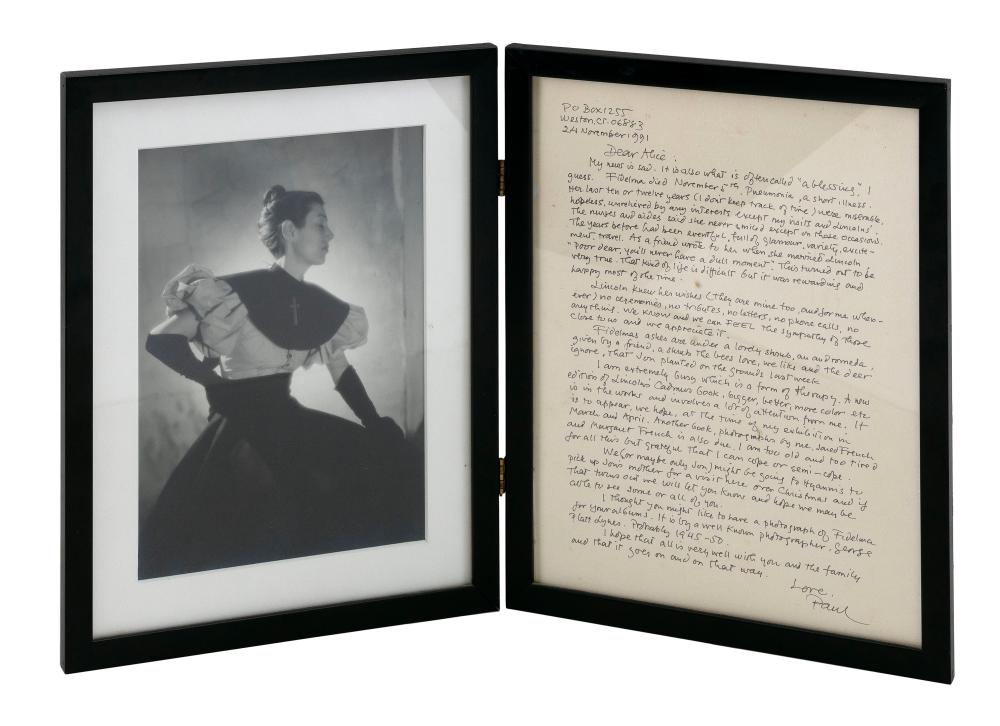 PO Box 1255
Weston, CT. 06883
24 November 1991
Dear Alice.
My news is sad. It is also what is often called "a blessing", I
guess. Fidelma died November 5th. Pneumonia, a short illness.
Her last ten or twelve years (I don't keep track of time) were miserable,
hopeless, unrelieved by any interests except my visits and Lincoln's.
The nurses and aides said she never smiled except on those occasions.
The years before had been eventful, full of glamour, variety, excite-
ment, travel. As a friend wrote to her when she married Lincoln
"Poor dear, you'll never have a dull moment". This turned out to be
very true. That kind of life is difficult but it was rewarding and
happy most of the time.
Lincoln knew her wishes (they are mine too, and for me when-
ever) no ceremonies, no tributes, no letters, no phone calls, no
anything. We know and we can FEEL the sympathy of those
close to us and we appreciate it.
Fidelmas ashes are under a lovely shrub, an andromeda,
given by a friend, a shrub the bees love, we like and the deer
ignore, that Jon planted on the grounds last week
I am extremely busy which is a form of therapy. A new
edition of Lincolns Cadmus book, bigger, better, more color etc
is in the works and involves a lot of attention from me. It
is to appear, we hope, at the time of my exhibition in
March and April. Another book, photographs by me, Jared French
and Margaret French is also due. I am too old and too tired
for all this but grateful that I can cope or semi-cope.
We (or maybe only Jon) might be going to Hyannis to
pick up Jons mother for a visit here over Christmas and if
that turns out we will let you know and hope we may be
able to see some or all of you.
I thought you might like to have a photograph of Fidelma
for your albums. It is by a well known photographer, George
Platt Lynes. Probably 1945-50.
I hope that all is very well with you and the family
and that it goes on and on that way.
Love,
Paul